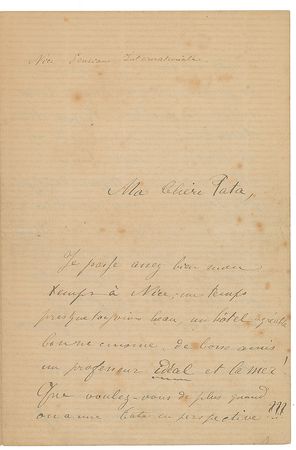 Nice Pension Internationale.
Ma Chère Tata,
Je passe assez bien mon
temps à Nice, un temps
presque toujours beau un hôtel
bonne cuisine, de bons amis
un professeur idéal et la mer!
Que voulez-vous de plus quand
on a une Tata en perspective !!!